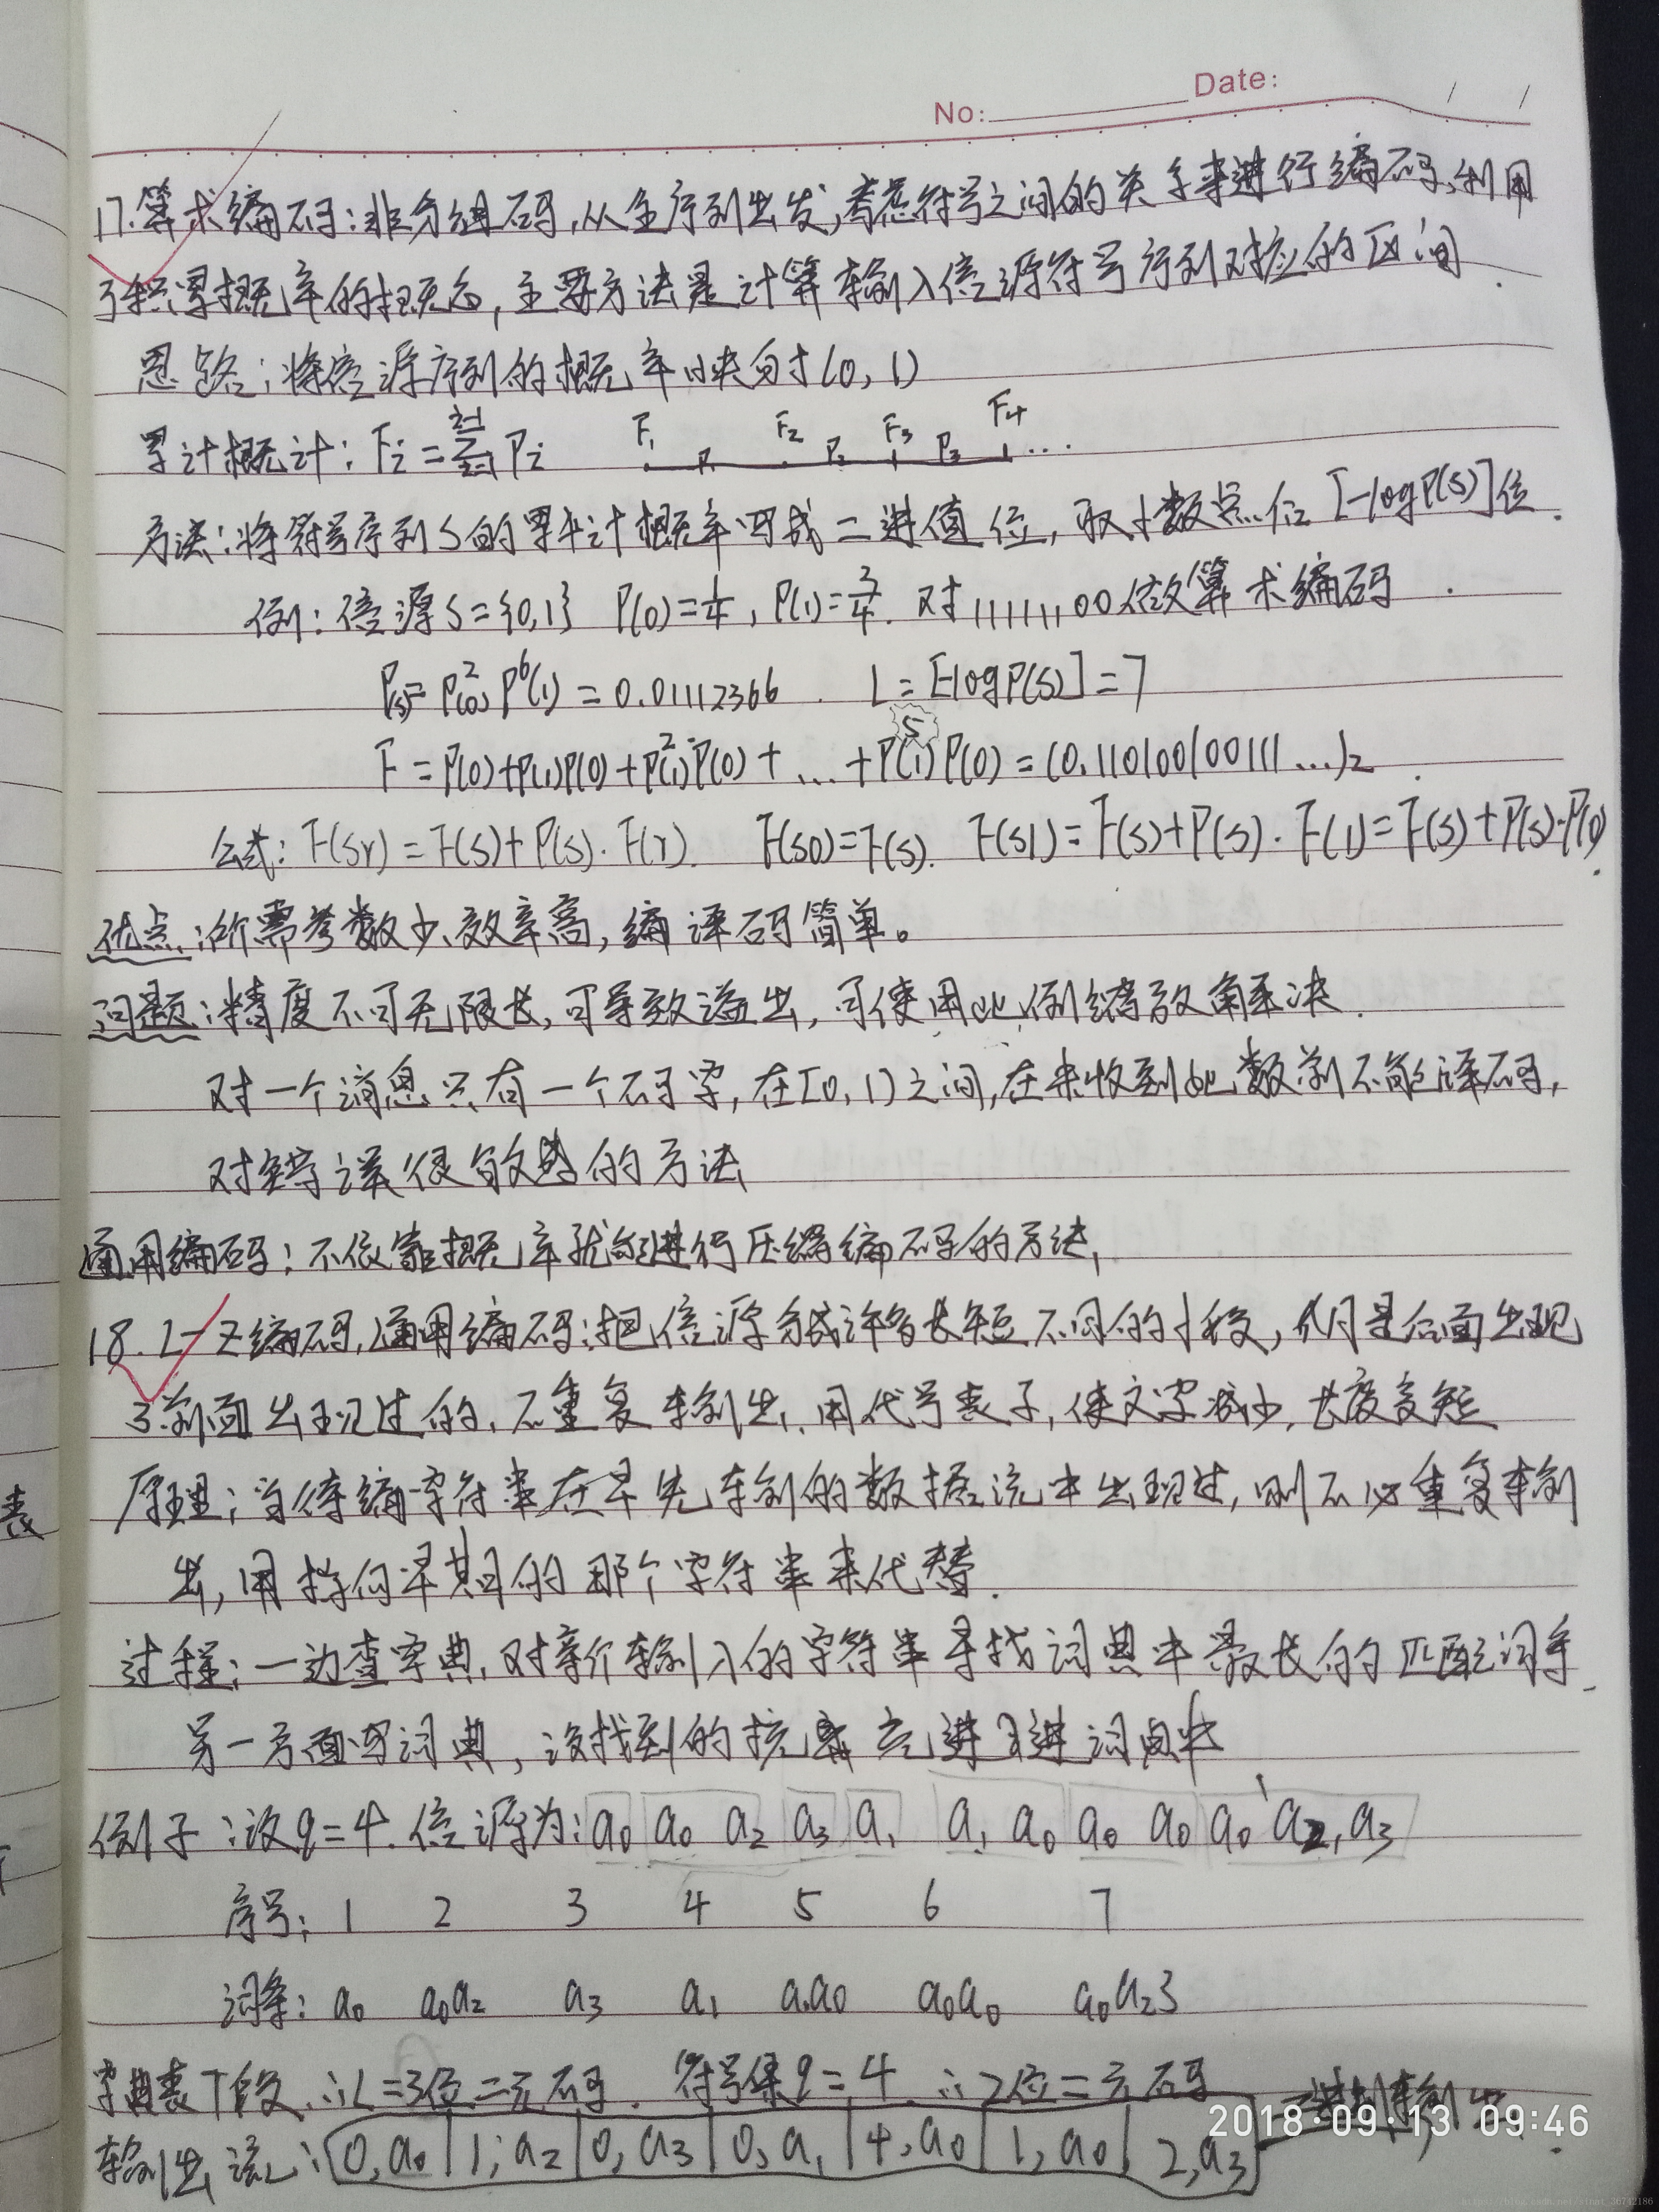 No: Date: / /
17.算术编码:非分组码,从全序列出发,考虑符号之间的关系来进行编码,利用
了积累概率的概念,主要方法是计算输入信源符号序列对应的区间.
思路:将信源序列的概率映射(0,1)
累计概计: Fi = Σ Pi F1 P1 F2 P2 F3 P3 F4 ...
方法:将符号序列S的累计概率写成二进值位,取小数点后[-logP(S)]位.
例:信源S={0,1} P(0)=1/4, P(1)=3/4. 对11111100做算术编码.
P(s)=P²(0)P⁶(1)=0.01112366. L=[-logP(S)]=7
F=P(0)+P(1)P(0)+P²(1)P(0)+...+P⁵(1)P(0)=(0.110100100111...)₂.
公式: F(Sr)=F(S)+P(S)·F(r). F(S0)=F(S). F(S1)=F(S)+P(S)·F(1)=F(S)+P(S)·P(0).
优点:所需参数少、效率高,编译码简单。
问题:精度不可无限长,可导致溢出,可使用比例缩放解决.
对一个消息只有一个码字,在[0,1)之间,在未收到此数前不能译码,
对错误很敏感的方法
通用编码:不依靠概率就能进行压缩编码的方法,
18. L-Z编码,通用编码:把信源分成许多长短不同的小段,
了前面出现过的,不重复输出,用代号表示,使文字减少,长度变短
原理:当待编字符串在早先输入的数据流中出现过,则不必重复输
出,用指向早期的那个字符串来代替.
过程:一边查字典,对每个输入的字符串寻找词典中最长的匹配词条.
另一方面写词典,没找到的 进词典中
例子:设q=4.信源为:a₀ a₀ a₂ a₃ a₁ a₁ a₀ a₀ a₀ a₀ a₂, a₃
序号: 1 2 3 4 5 6 7
词条: a₀ a₀a₂ a₃ a₁ a₁a₀ a₀a₀ a₀a₂3
字典表7段,∴L=3位二元码. 符号集q=4 ∴2位二元码
2018-09-13 09:46
输出流:0,a₀|1,a₂|0,a₃|0,a₁|4,a₀|1,a₀|2,a₃
表